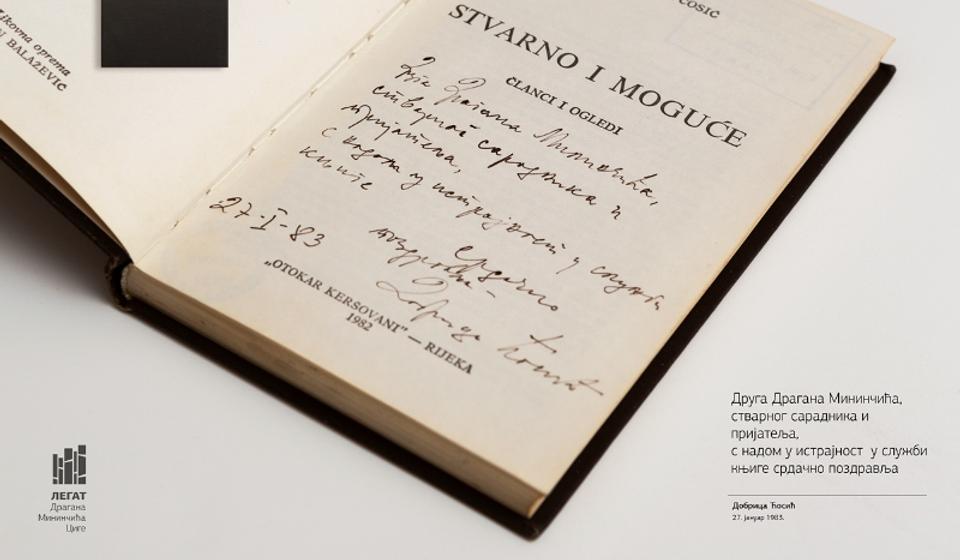 Likovna oprema
N BALAŽEVIĆ
ĆOSIĆ
STVARNO I MOGUĆE
ČLANCI I OGLEDI
Друга Драгана Мининчића,
стварног сарадника и
пријатеља,
с надом у истрајност у служби
књиге
срдачно
поздравља
Добрица Ћосић
27-I-83
„OTOKAR KERŠOVANI” — RIJEKA
1982
ЛЕГАТ
Драгана
Мининчића
Циге
Друга Драгана Мининчића,
стварног сарадника и
пријатеља,
с надом у истрајност у служби
књиге срдачно поздравља
Добрица Ћосић
27. јануар 1983.